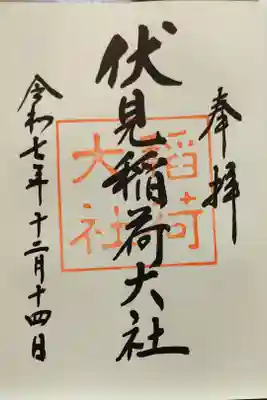 奉拝
伏見稲荷大社
稲荷
大社
令和七年十二月十四日